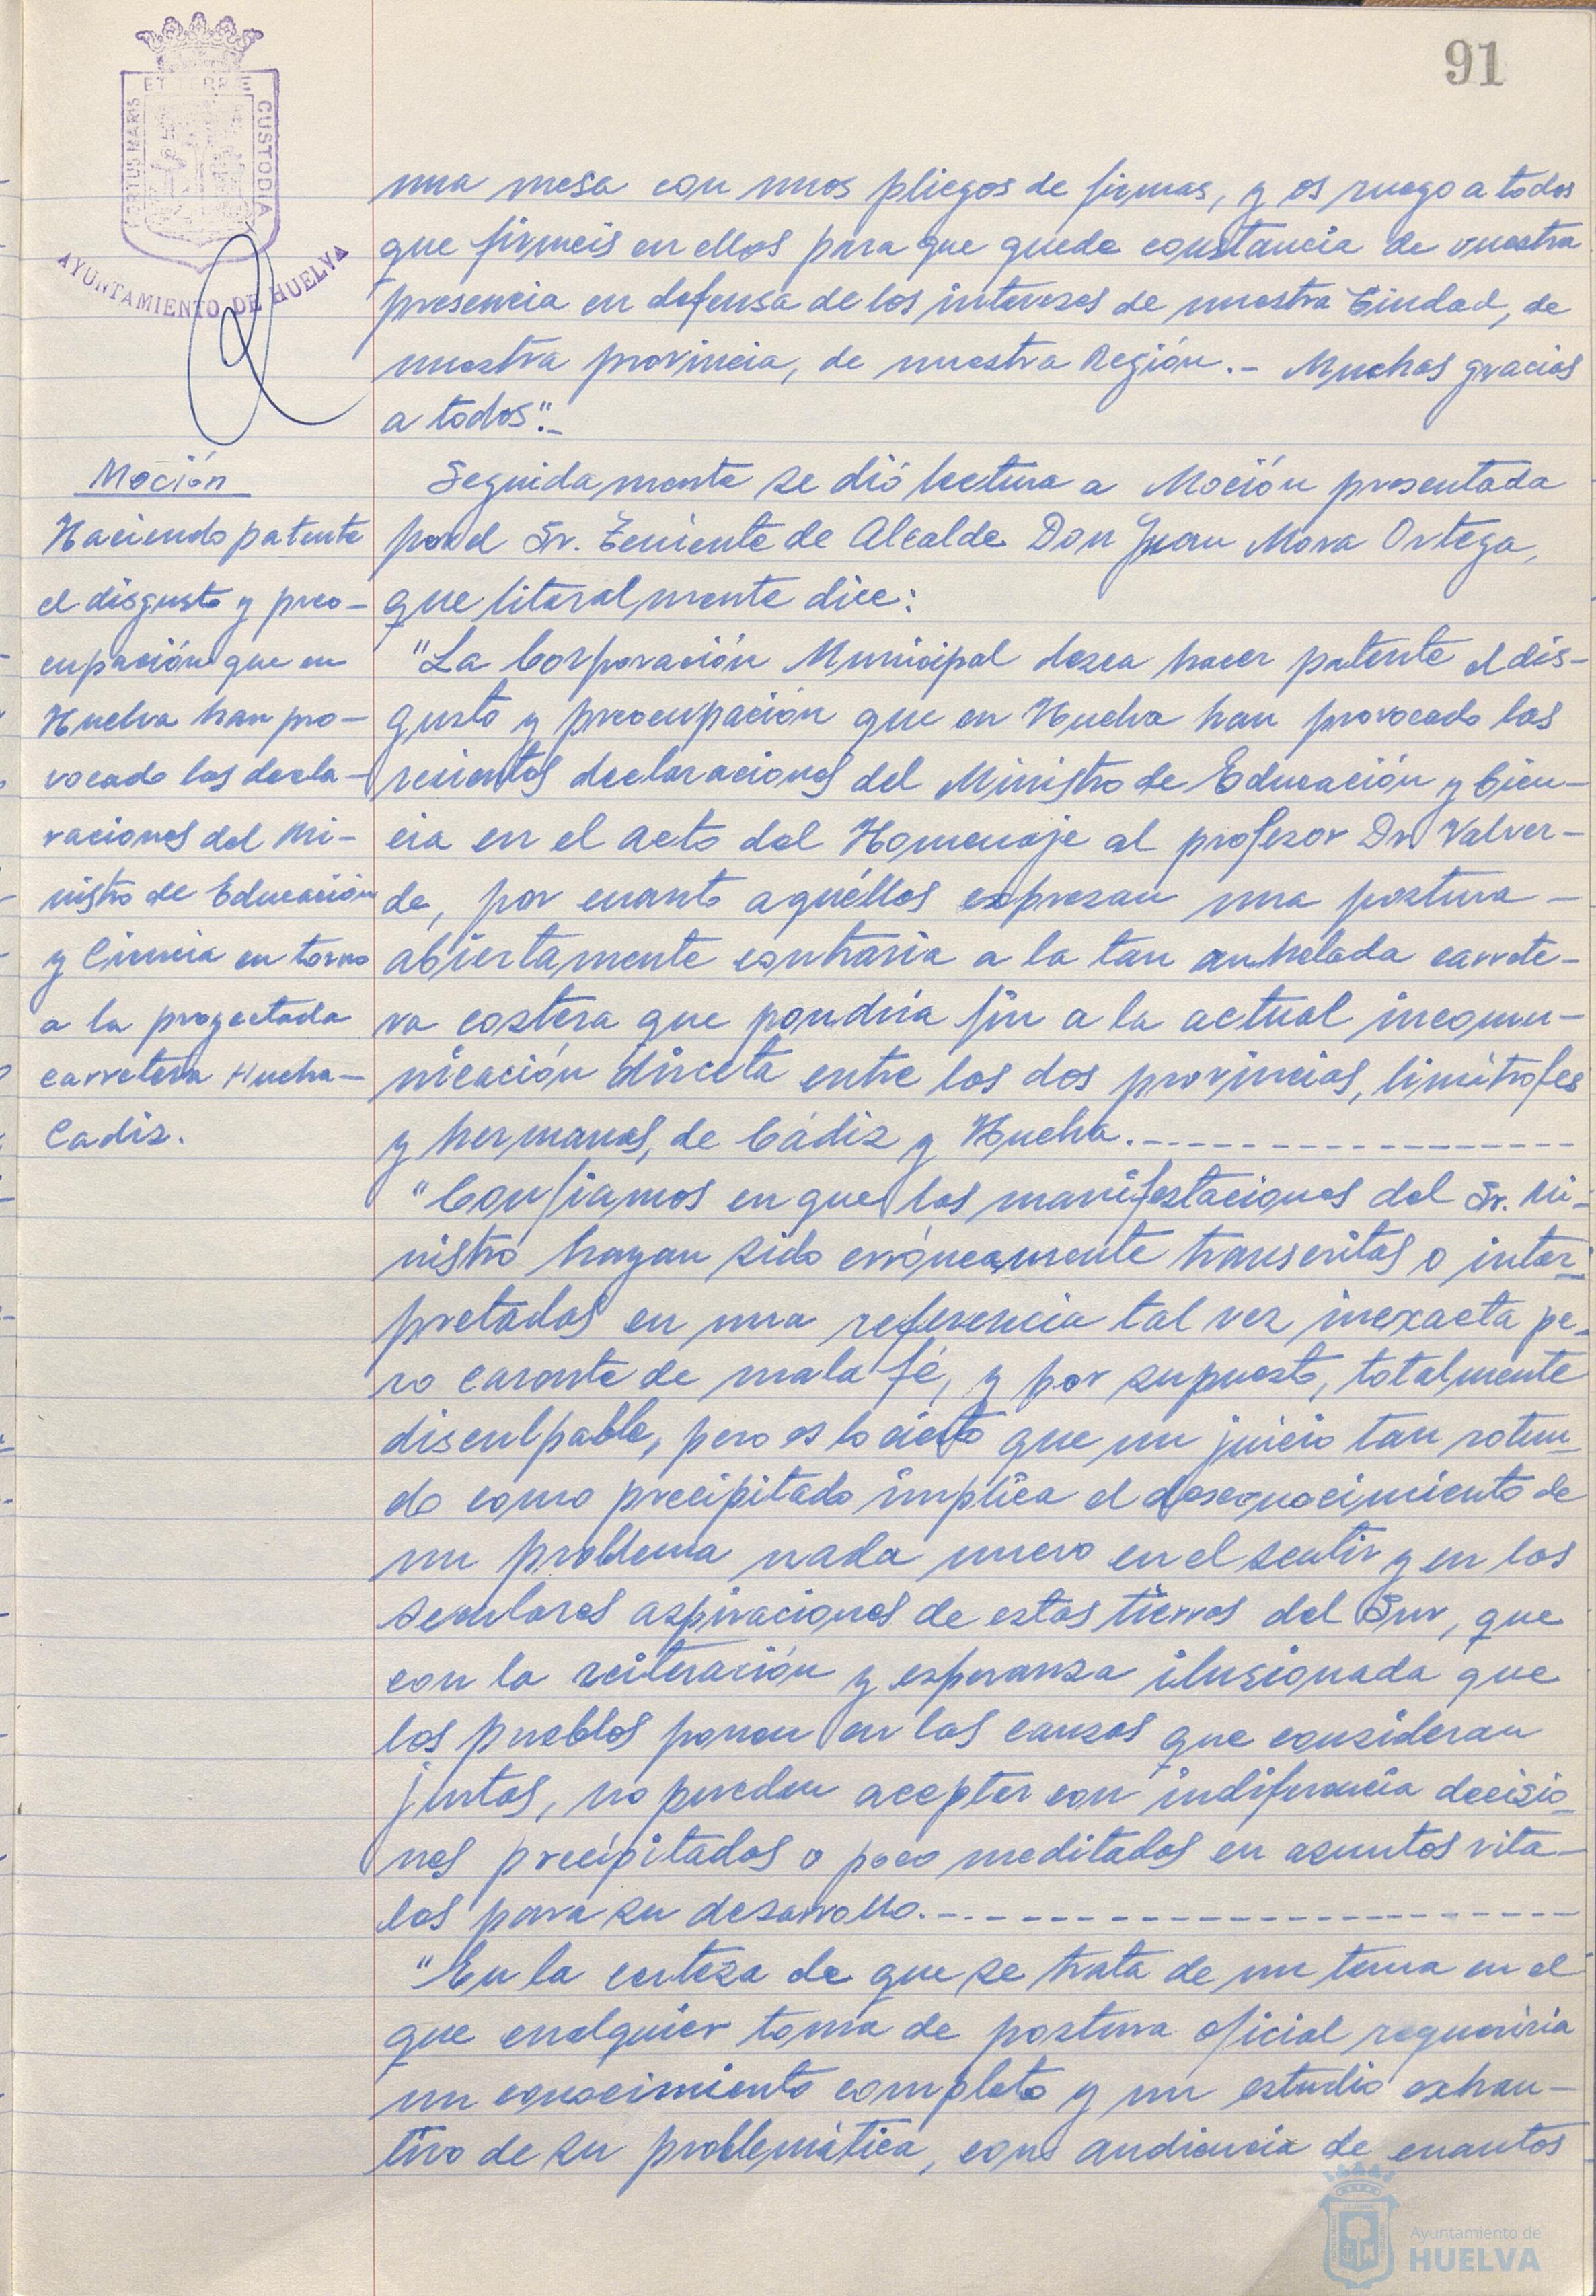 91
PORTUS MARIS ET TERRE CUSTODIA
AYUNTAMIENTO DE HUELVA
una mesa con unos pliegos de firmas, y os ruego a todos
que firmeis en ellos para que quede constancia de vuestra
presencia en defensa de los intereses de nuestra Ciudad, de
nuestra provincia, de nuestra Región.- Muchas gracias
a todos".-
Moción
Haciendo patente
el disgusto y preo-
cupación que en
Huelva han pro-
vocado las decla-
raciones del Mi-
nistro de Educación
y Ciencia en torno
a la proyectada
carretera Huelva-
Cadiz.
Seguidamente se dió lectura a Moción presentada
por el Sr. Teniente de Alcalde Don Juan Mora Ortega,
que literalmente dice:
"La Corporación Municipal desea hacer patente el dis-
gusto y preocupación que en Huelva han provocado las
recientes declaraciones del Ministro de Educación y Cien-
cia en el acto del Homenaje al profesor Dr. Valver-
de, por cuanto aquéllas expresan una postura -
abiertamente contraria a la tan anhelada carrete-
ra costera que pondría fin a la actual incomu-
nicación directa entre las dos provincias, limítrofes
y hermanas, de Cádiz y Huelva.-------------------
"Confiamos en que las manifestaciones del Sr. Mi-
nistro hayan sido erróneamente transcritas o inter-
pretadas en una referencia tal vez inexacta pe-
ro carente de mala fé, y por supuesto, totalmente
disculpable, pero es lo cierto que un juicio tan rotun-
do como precipitado implica el desconocimiento de
un problema nada nuevo en el sentir y en las
seculares aspiraciones de estas tierras del Sur, que
con la reiteración y esperanza ilusionada que
los pueblos ponen en las causas que consideran
justas, no pueden aceptar con indiferencia decisio-
nes precipitadas o poco meditadas en asuntos vita-
les para su desarrollo.-----------------------
"En la certeza de que se trata de un tema en el
que cualquier toma de postura oficial requeriría
un conocimiento completo y un estudio exhaus-
tivo de su problemática, con audiencia de cuantos
Ayuntamiento de
HUELVA